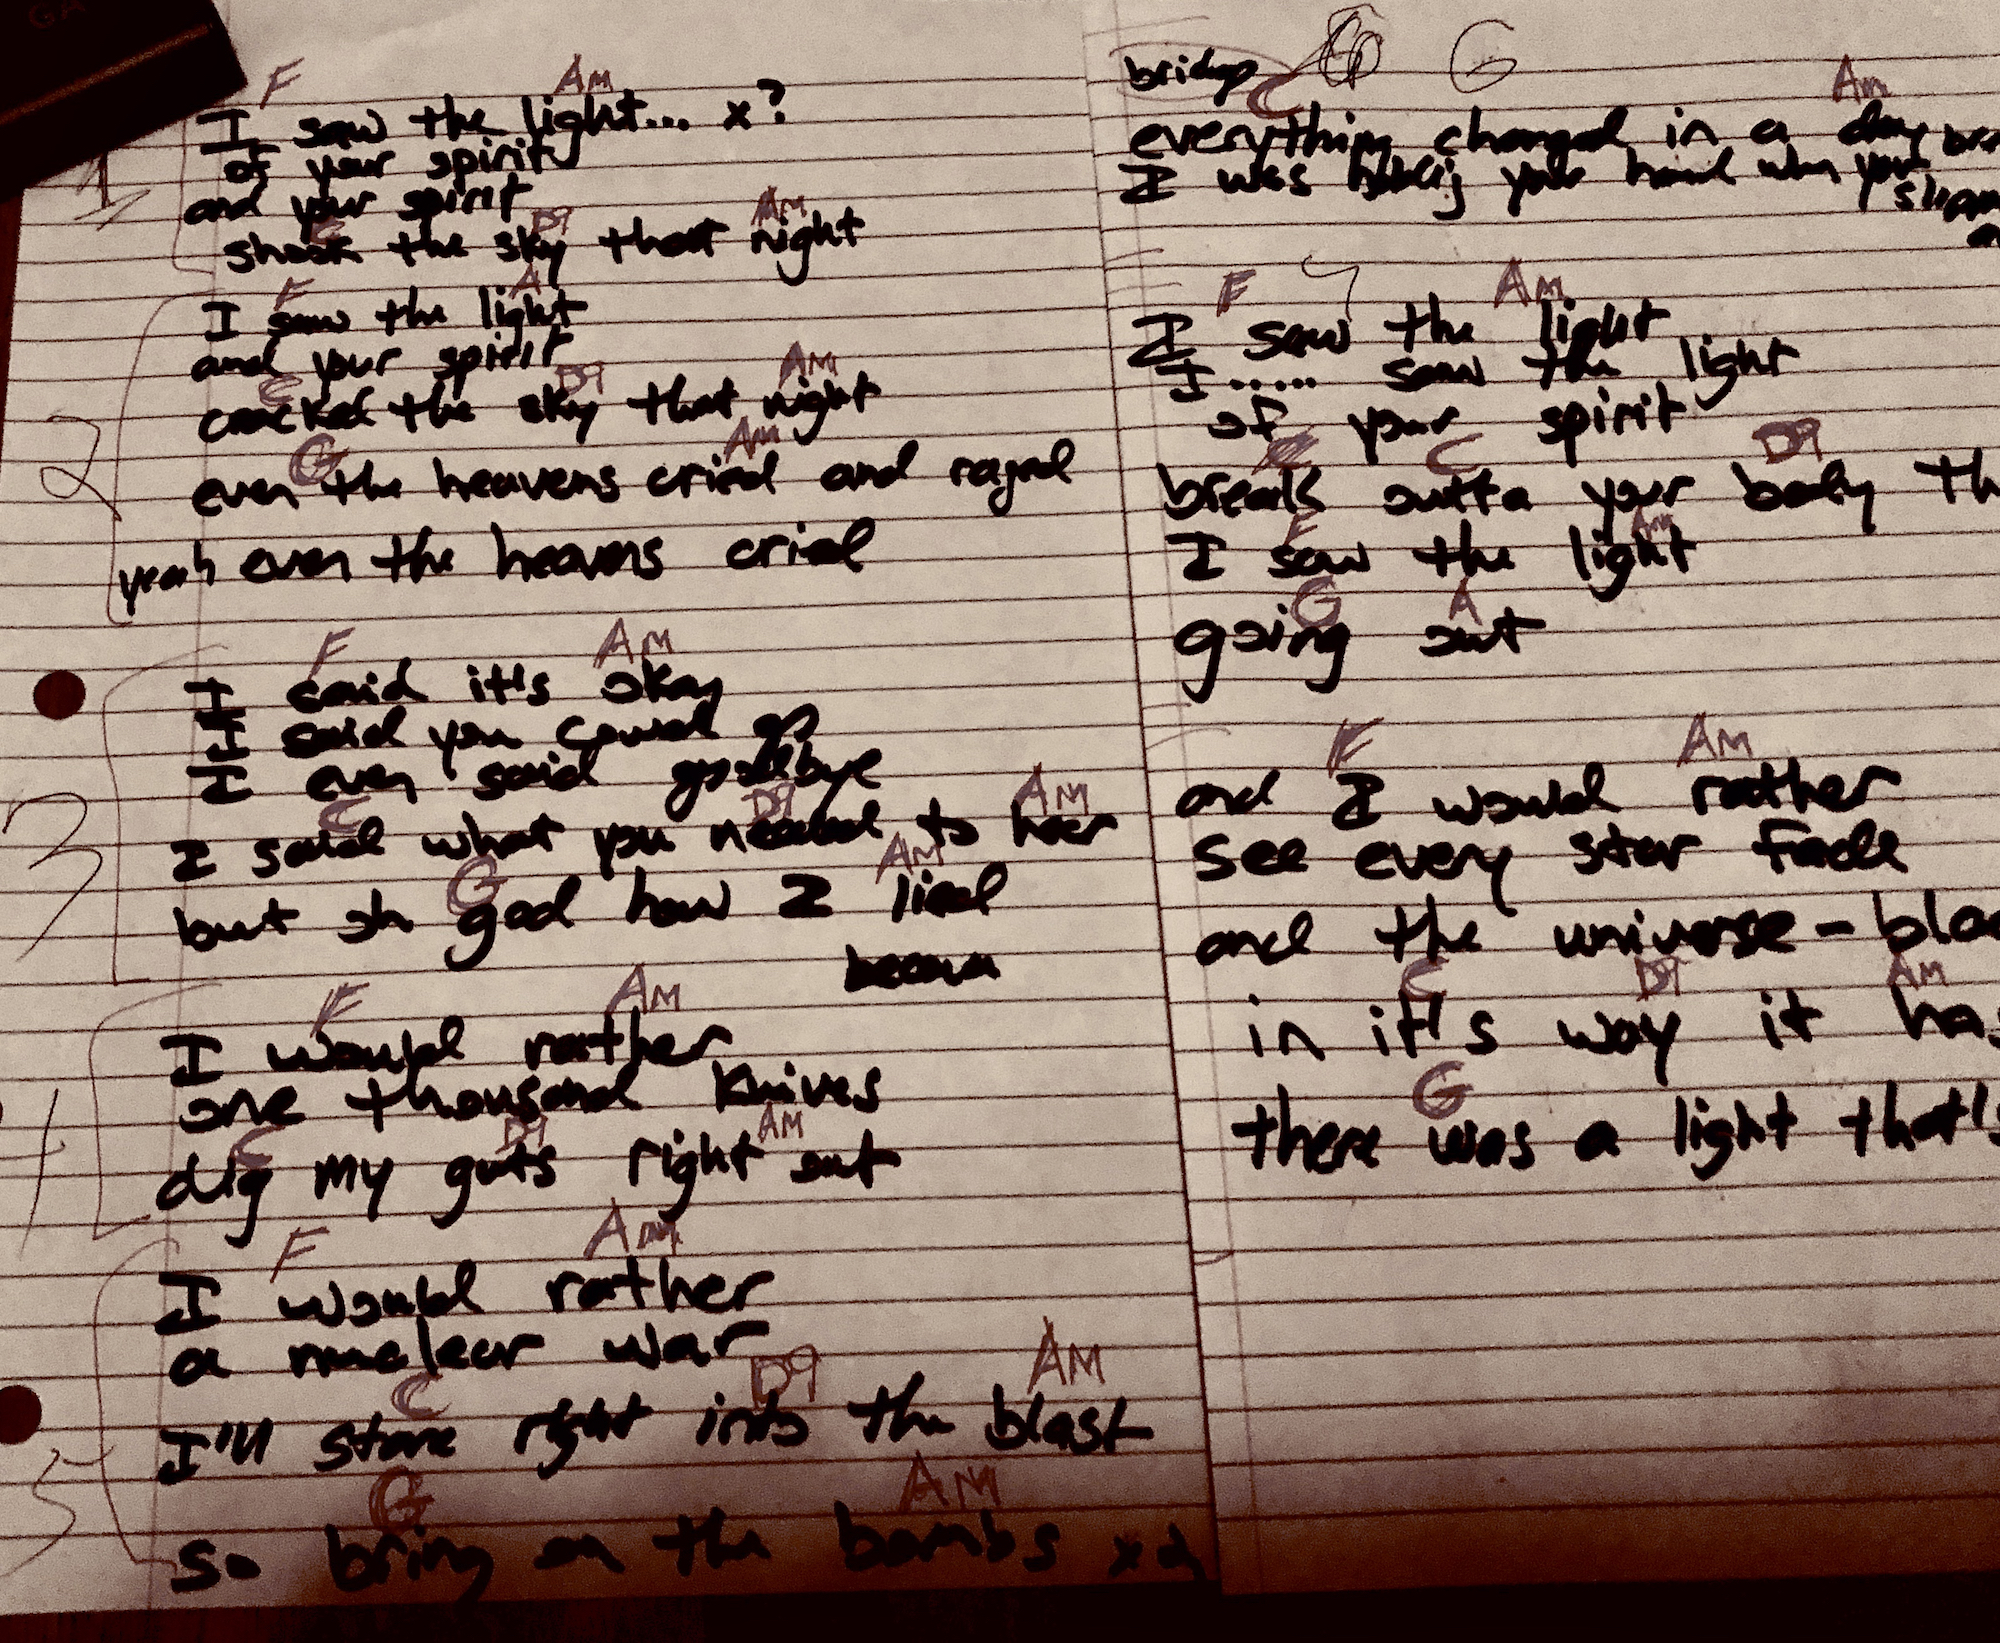 GA
F Am
I saw the light... x?
of your spirit
and your spirit
C D9 Am
shook the sky that night
1
F A
I saw the light
and your spirit
C D9 Am
cracked the sky that night
G Am
even the heavens cried and raged
yeah even the heavens cried
2
F Am
I said it's okay
I said you could go
I even said goodbye
C D9 Am
I said what you needed to hear
G Am
but oh god how I lied
3
F Am
I would rather
one thousand knives
C D9 Am
dig my guts right out
4
F Am
I would rather
a nuclear war
C D9 AM
I'll stare right into the blast
G AM
so bring on the bombs x2
5
bridge G
C Am
everything changed in a day
I was holding your hand when your
F Am
I saw the light
I ..... saw the light
of your spirit
C D9
break outta your body
F Am
I saw the light
G A
going out
F AM
and I would rather
see every star fade
and the universe -
C D9 AM
in it's way it
G
there was a light that's